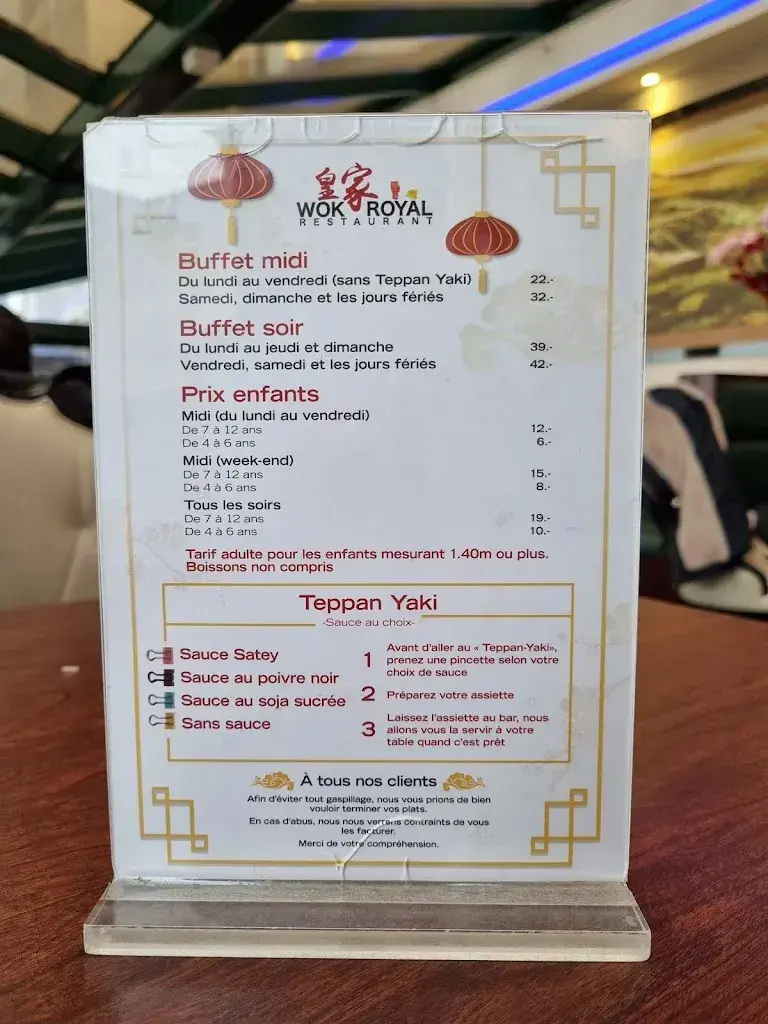 皇家
WOK ROYAL
RESTAURANT
Buffet midi
Du lundi au vendredi (sans Teppan Yaki) 22.-
Samedi, dimanche et les jours fériés 32.-
Buffet soir
Du lundi au jeudi et dimanche 39.-
Vendredi, samedi et les jours fériés 42.-
Prix enfants
Midi (du lundi au vendredi)
De 7 à 12 ans 12.-
De 4 à 6 ans 6.-
Midi (week-end)
De 7 à 12 ans 15.-
De 4 à 6 ans 8.-
Tous les soirs
De 7 à 12 ans 19.-
De 4 à 6 ans 10.-
Tarif adulte pour les enfants mesurant 1.40m ou plus.
Boissons non compris
Teppan Yaki
-Sauce au choix-
Sauce Satey
Sauce au poivre noir
Sauce au soja sucrée
Sans sauce
1 Avant d'aller au « Teppan-Yaki»,
prenez une pincette selon votre
choix de sauce
2 Préparez votre assiette
3 Laissez l'assiette au bar, nous
allons vous la servir à votre
table quand c'est prêt
À tous nos clients
Afin d'éviter tout gaspillage, nous vous prions de bien
vouloir terminer vos plats.
En cas d'abus, nous nous verrons contraints de vous
les facturer.
Merci de votre compréhension.